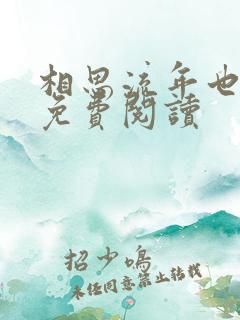 相思流年也
免費閱讀
招少鳴
未經同意禁止转载